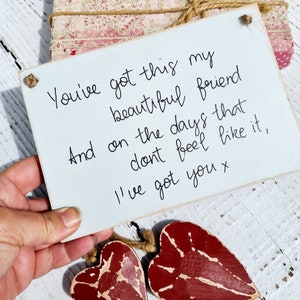 You've got this my
beautiful friend
And on the days that
dont feel like it,
I've got you x